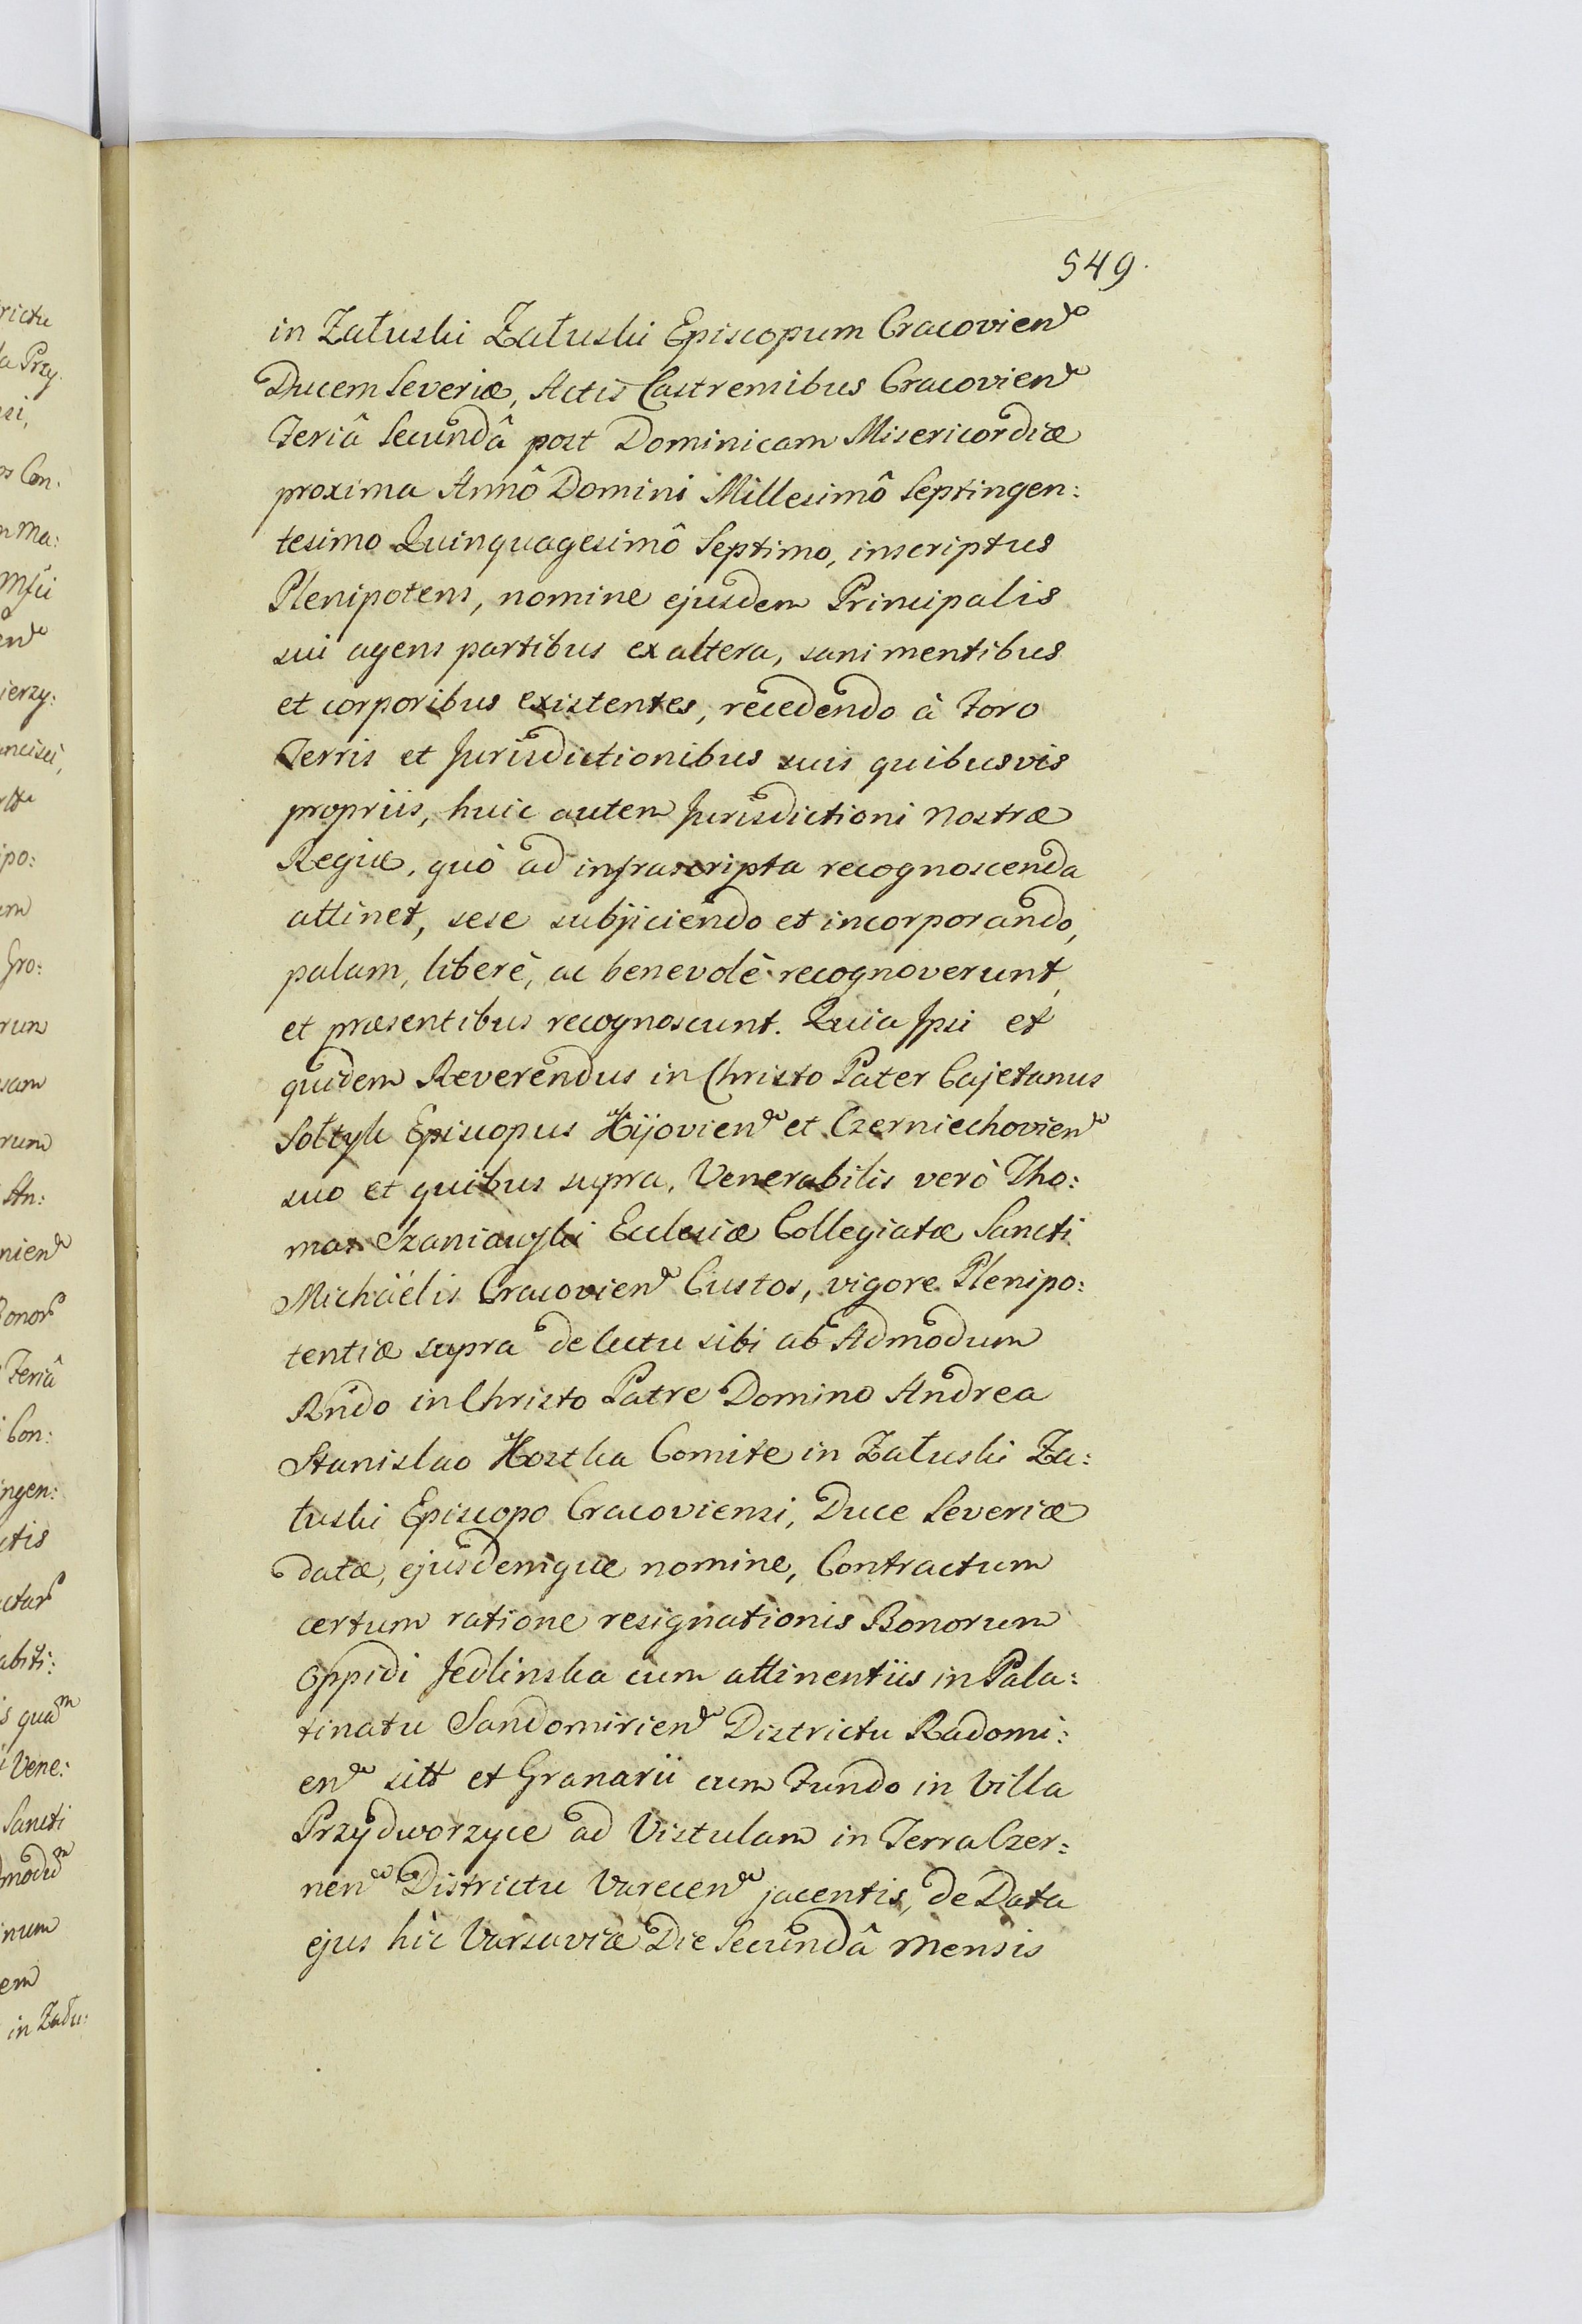 549.
in Załuski Załuski Episcopum Cracovien
Ducem Severiæ, Actis Castrensibus Cracovien
Feriâ Secundâ post Dominicam Misericordiæ
proxima Annô Domini Millesimô Septingen:
tesimo Quinquagesimô Septimo, inscriptus
Plenipotens, nomine ejusdem Principalis
sui agens partibus ex altera, sani mentibus
et corporibus existentes, recedendo à Foro
Terris et Jurisdictionibus suis quibusvis
propriis, huic autem Jurisdictioni Nostræ
Regiæ, quò ad infrascripta recognoscenda
attinet, sese subjiciendo et incorporando,
palam, liberè, ac benevolè recognoverunt,
et præsentibus recognoscunt. Quia Ipsi et
quidem Reverendus in Christo Pater Cajetanus
Sołtyk Episcopus Kijovien et Czerniechovien
suo et quibus supra, Venerabilis verò Tho:
mas Szaniawski Ecclesiæ Collegiatæ Sancti
Michaélis Cracovien Custos, vigore Plenipo:
tentiæ supra de lectu sibi ab Admodum
Rndo in Christo Patre Domino Andrea
Stanislao Kostka Comite in Załuski Za:
łuski Episcopo Cracoviensi, Duce Severiæ
datæ, ejusdemque nomine, Contractum
certum ratione resignationis Bonorum
Oppidi Jedlinska cum attinentiis in Pala:
tinatu Sandomirien Districtu Radomi:
en sitt et Granarii cum Fundo in Villa
Przydworzyce ad Vistulam in Terra Czer:
nen Districtu Varecen jacentis, de Data
ejus hìc Varsaviæ Die Secundâ Mensis
rictu
a Przy.
si,
os Con:
m Ma:
en
ierzy:
ncisci,
ipo:
um
Gro:
rum
sam
rum
An:
nien
Bonor
Feriâ
Con:
ingen:
ctis
abiti:
s quam
Vene:
Sancti
modum
num
em
in Zału: